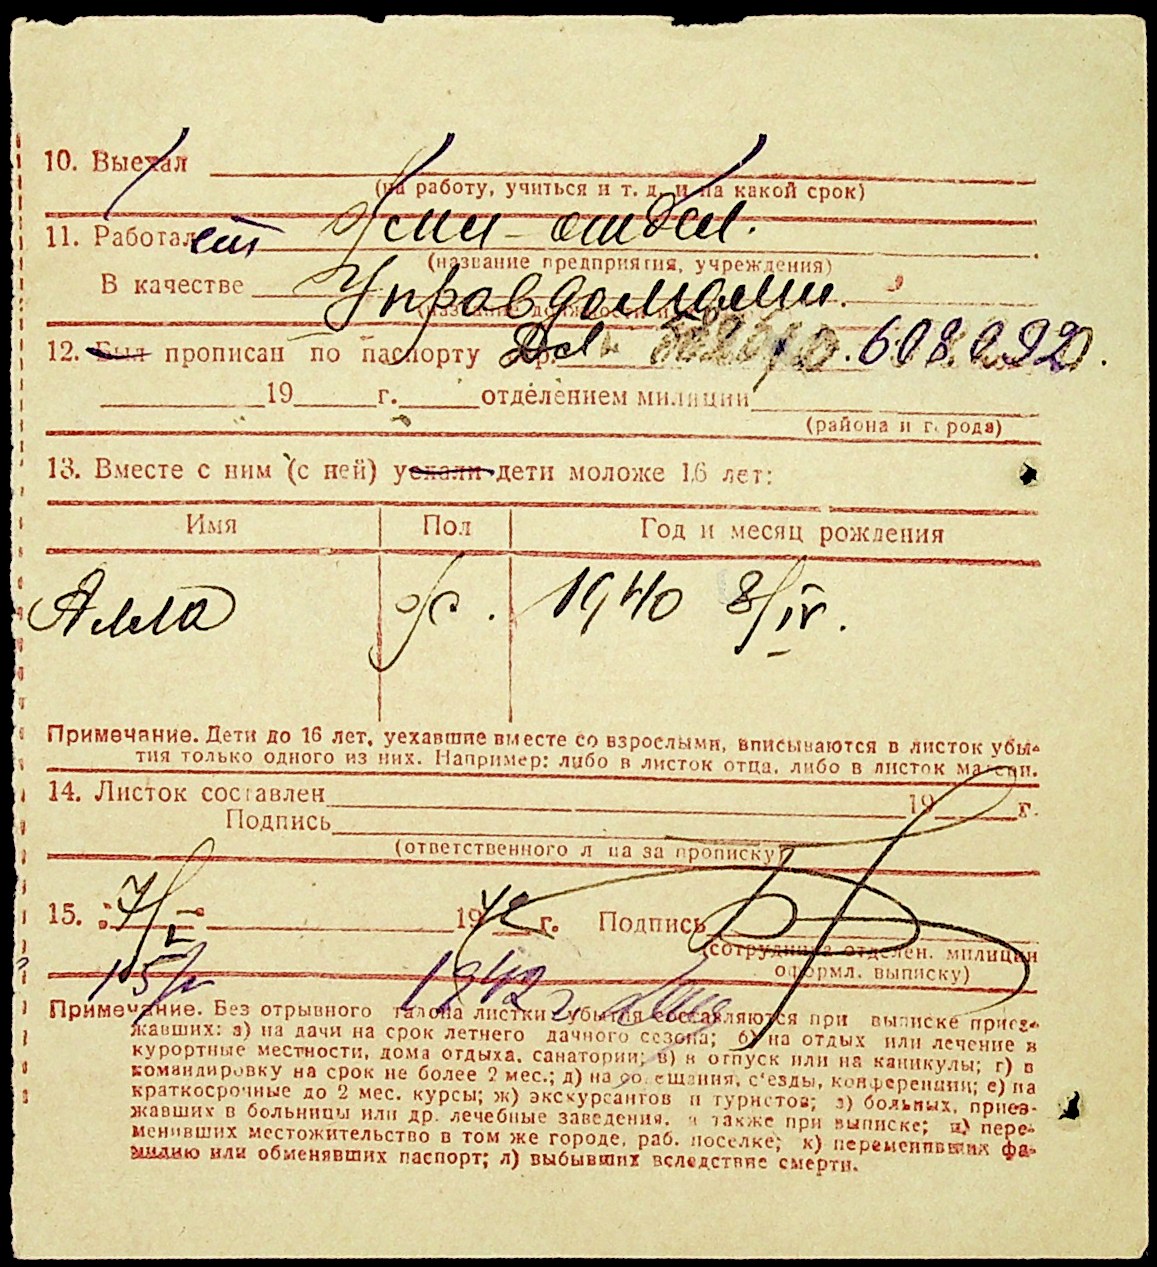 10. Выехал
(на работу, учиться и т. д. и на какой срок)
11. Работает
(название предприятия, учреждения)
В качестве Управдомами.
12. Был прописан по паспорту 608092
19 г. отделением милиции
(района и города)
13. Вместе с ним (с ней) уехали дети моложе 16 лет:
Имя Пол Год и месяц рождения
Алла ж. 1940 8/IV.
Примечание. Дети до 16 лет, уехавшие вместе со взрослыми, вписываются в листок убы-
тия только одного из них. Например: либо в листок отца, либо в листок матери.
14. Листок составлен 19 г.
Подпись
(ответственного лица за прописку)
15. 7/V 1942 г. Подпись
(сотрудника отделен. милиции
оформл. выписку)
15/ 1942 г.
Примечание. Без отрывного талона листки убытия составляются при выписке приез-
жавших: а) на дачи на срок летнего дачного сезона; б) на отдых или лечение в
курортные местности, дома отдыха, санатории; в) в отпуск или на каникулы; г) в
командировку на срок не более 2 мес.; д) на совещания, с'езды, конференции; е) на
краткосрочные до 2 мес. курсы; ж) экскурсантов и туристов; з) больных, приез-
жавших в больницы или др. лечебные заведения, а также при выписке; и) пере-
менивших местожительство в том же городе, раб. поселке; к) переменивших фа-
милию или обменявших паспорт; л) выбывших вследствие смерти.